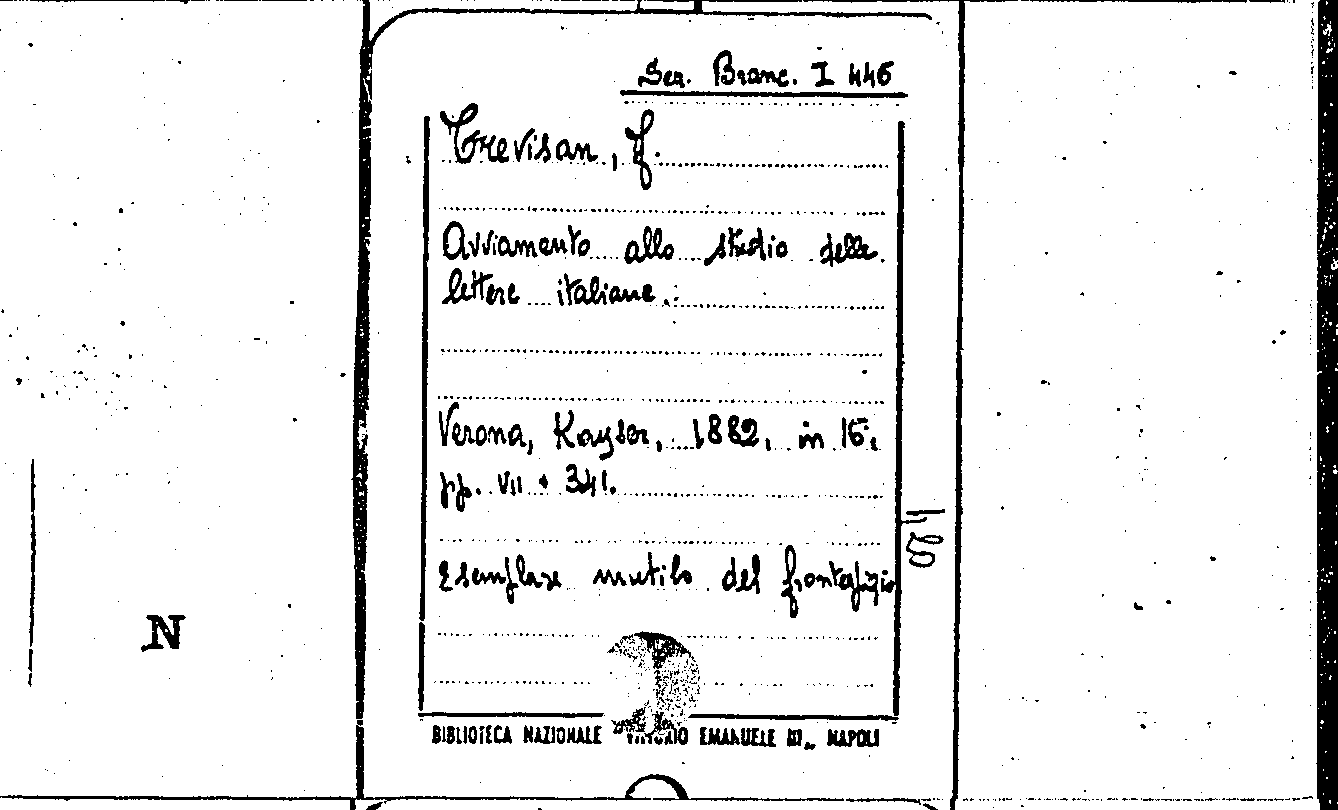 Ser. Branc. I 446
Trevisan, F.
Avviamento allo studio delle
lettere italiane.
Verona, Kayser, 1882, in 16.
pp. VII + 341.
Esemplare mutilo del frontespizio
N
BIBLIOTECA NAZIONALE "VITTORIO EMANUELE III„ NAPOLI